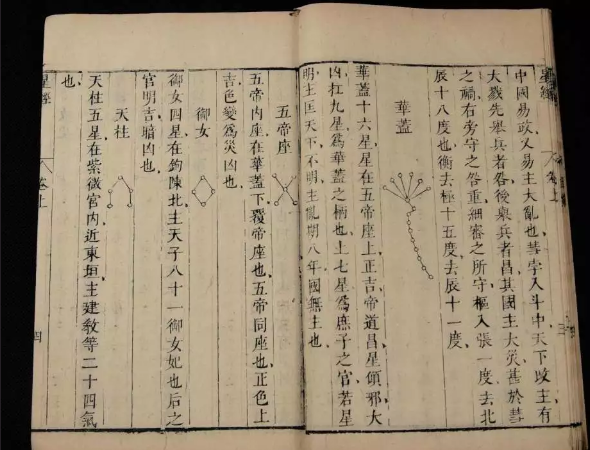 星經 卷上 三
中國易政又易主大亂也彗孛入斗中天下改主有
大戮先舉兵者咎後兵者昌其國主大災甚於彗
之禍右旁守之咎重細審之所守樞入張一度去北
辰十八度也衡去極十五度去辰十一度
華蓋
華蓋十六星星在五帝座上正吉帝道昌星傾邪大
凶杠九星爲華蓋之柄也上七星爲庶子之官若星
明主匡天下不明主亂期八年國無主也
五帝座
五帝內座在華蓋下覆帝座也五帝同座也正色上
吉色變爲災凶也
御女
御女四星在鉤陳北主天子八十一御女妃也后之
官明吉暗凶也
天柱
天柱五星在紫微宮內近東垣主建敎等二十四氣
也
星經 卷上 四